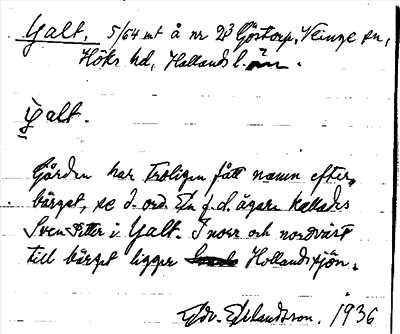 Yalt. 5/64 mt å nr 23 Göstorp, Veinge sn,
Höks hd, Hallands l.
Yalt.
Gården har troligen fått namn efter
bärget, se d. ord. En f.d. ägare kallades
Sven Petter i Yalt. I norr och nordväst
till bärget ligger Hollandssjön.
Edv. Erlandsson. 1936